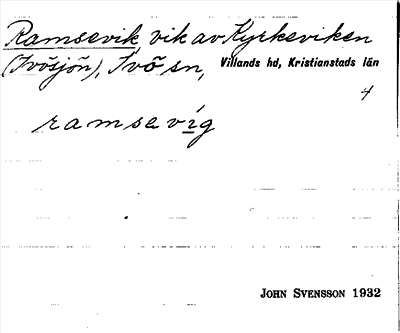 Ramsevik, vik av Kyrkeviken
(Ivösjön), Ivö sn, Villands hd, Kristianstads län
4
ramsevíg
JOHN SVENSSON 1932